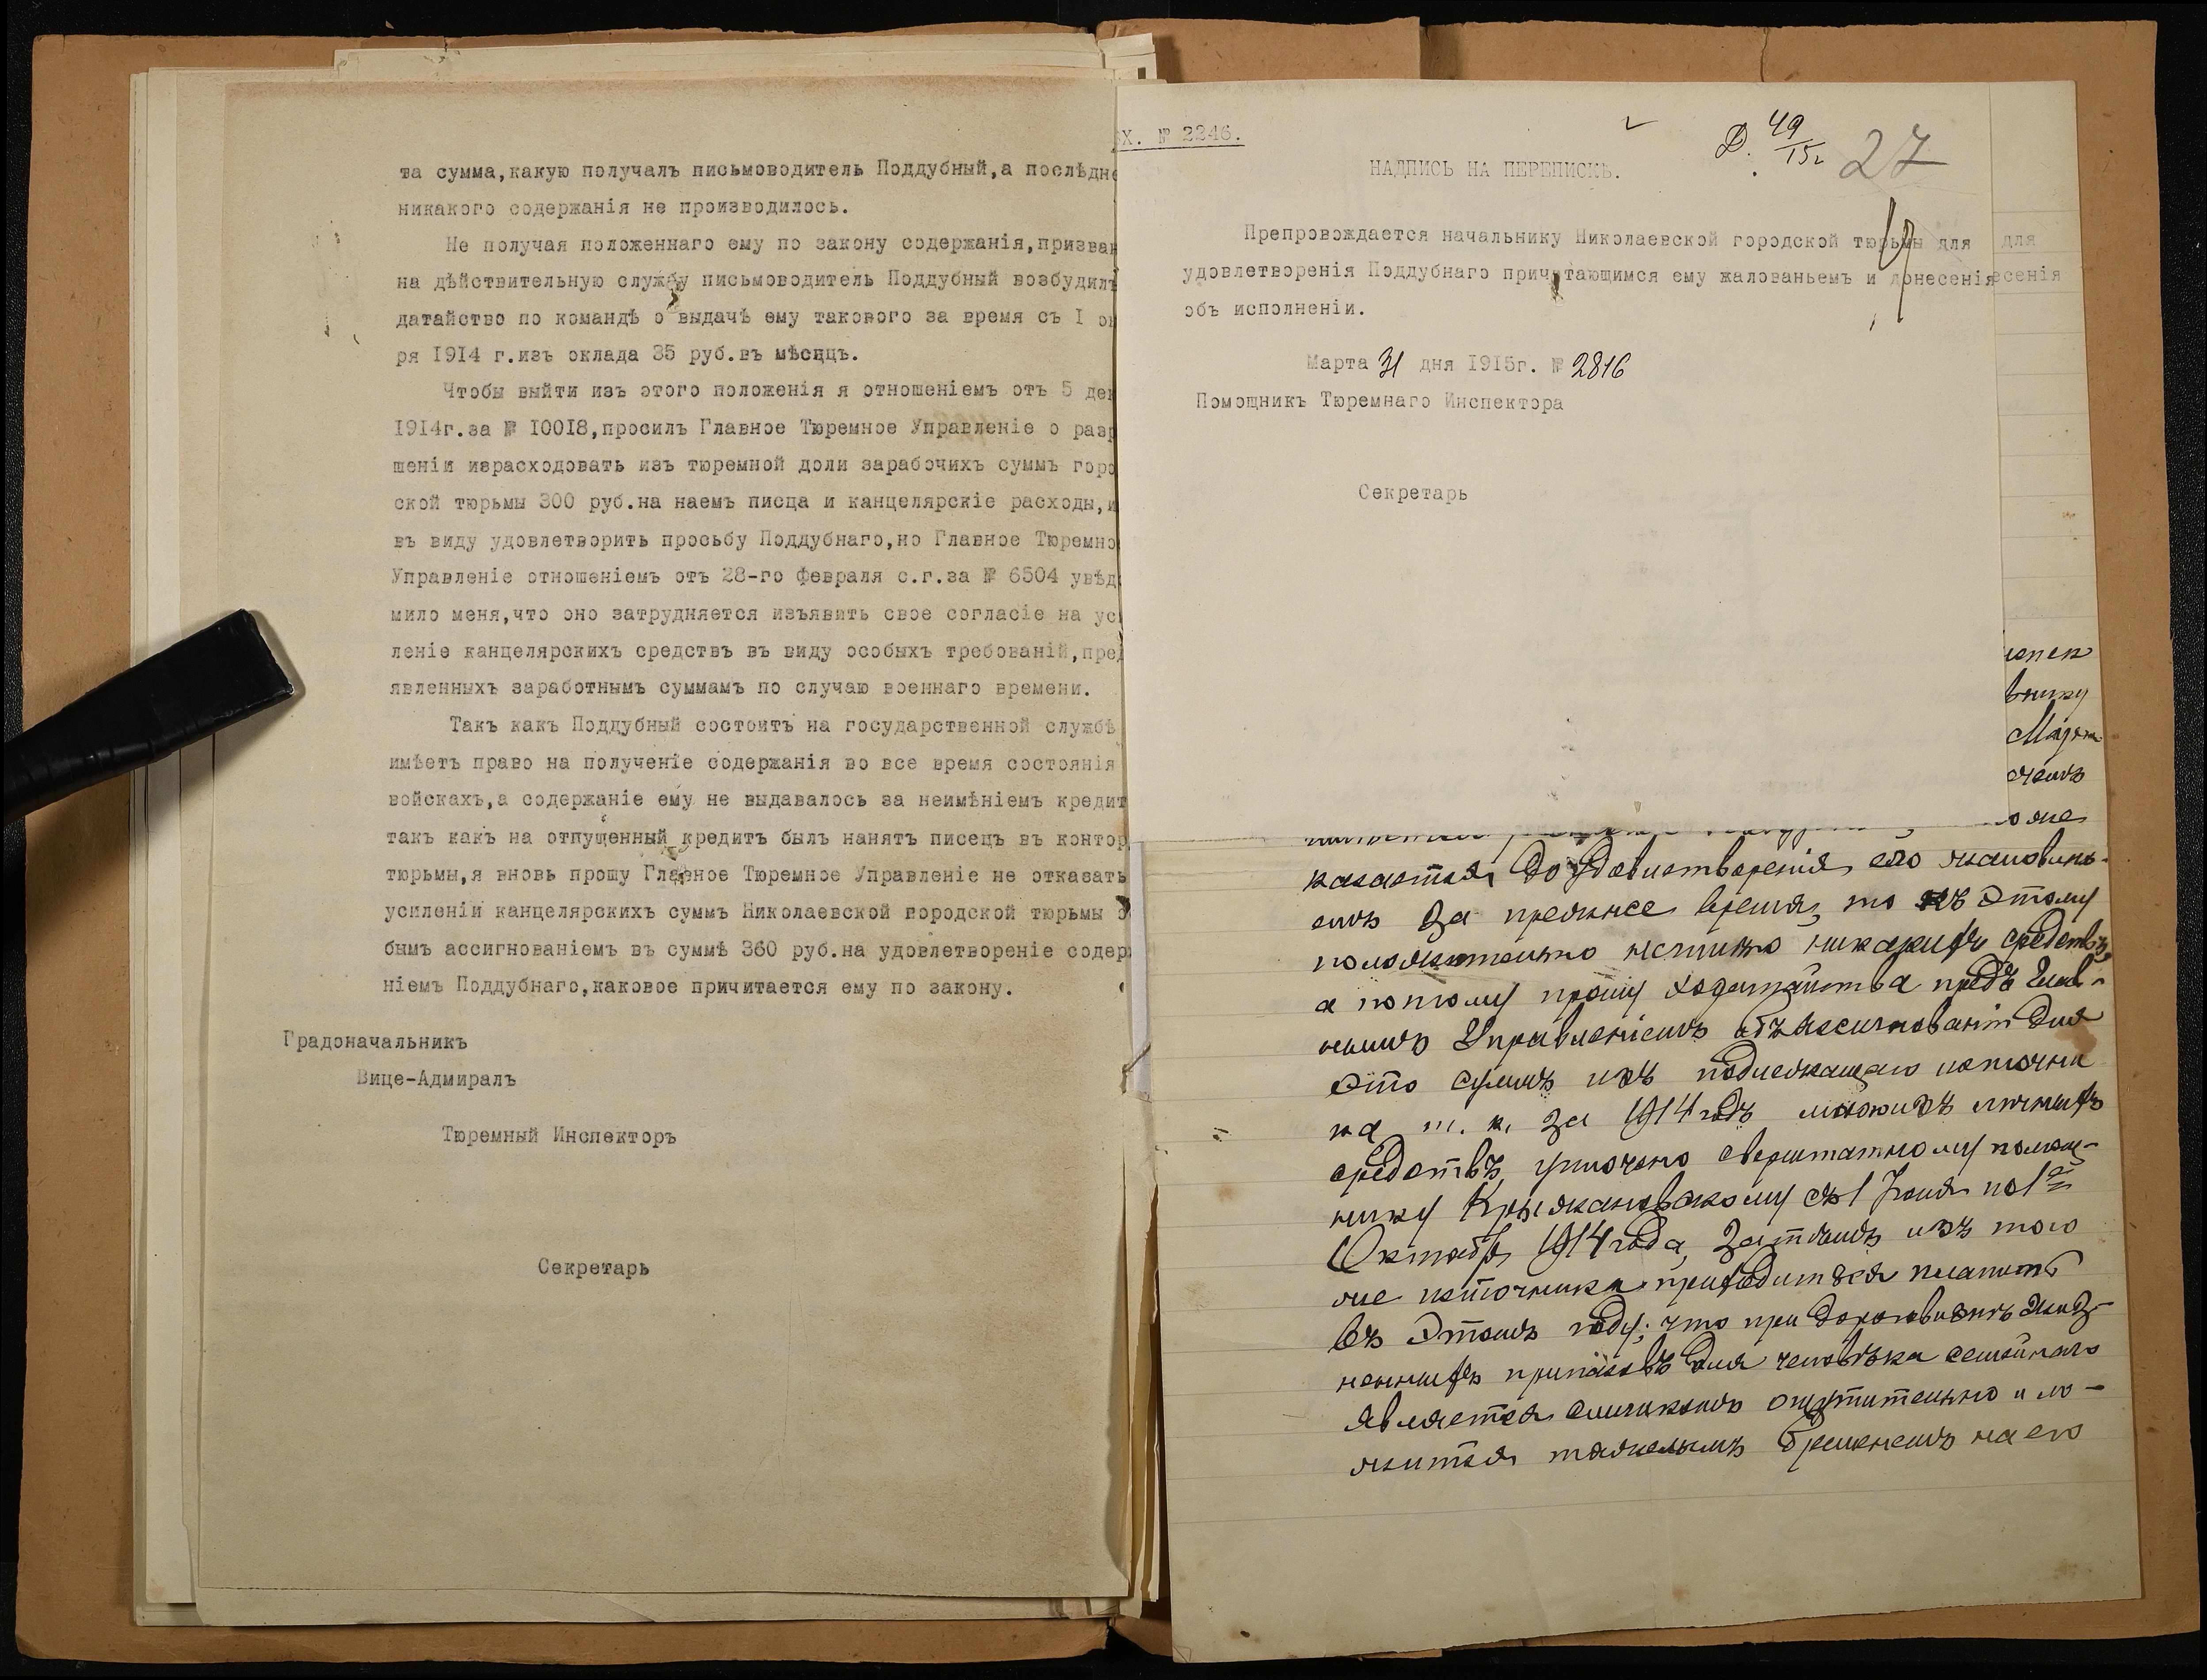 та сумма,какую получалъ письмоводитель Поддубный,а послѣдне
никакого содержанія не производилось.
Не получая положеннаго ему по закону содержанія,призван
на дѣйствительную службу письмоводитель Поддубный возбудилъ
датайство по командѣ о выдачѣ ему такового за время съ I ок
ря 1914 г.изъ оклада 35 руб.въ мѣсяцъ.
Чтобы выйти изъ этого положенія я отношеніемъ отъ 5 дек
1914г.за № 10018,просилъ Главное Тюремное Управленіе о разр
шеніи израсходовать изъ тюремной доли зарабочихъ суммъ горо
ской тюрьмы 300 руб.на наемъ писца и канцелярскіе расходы,и
въ виду удовлетворить просьбу Поддубнаго,но Главное Тюремно
Управленіе отношеніемъ отъ 28-го февраля с.г.за № 6504 увѣд
мило меня,что оно затрудняется изъявить свое согласіе на ус
леніе канцелярскихъ средствъ въ виду особыхъ требованій,пред
явленныхъ заработнымъ суммамъ по случаю военнаго времени.
Такъ какъ Поддубный состоитъ на государственной службѣ
имѣетъ право на полученіе содержанія во все время состоянія
войскахъ,а содержаніе ему не выдавалось за неимѣніемъ кредит
такъ какъ на отпущенный кредитъ былъ нанятъ писецъ въ контор
тюрьмы,я вновь прошу Главное Тюремное Управленіе не отказать
усиленіи канцелярскихъ суммъ Николаевской городской тюрьмы о
бымъ ассигнованіемъ въ суммѣ 360 руб.на удовлетвореніе содер
ніемъ Поддубнаго,каковое причитается ему по закону.
Градоначальникъ
Вице-Адмиралъ
Тюремный Инспекторъ
Секретарь
Х. № 2246.
Д. 49/15г 27
НАДПИСЬ НА ПЕРЕПИСКѢ.
Препровождается начальнику Николаевской городской тюрьмы для для
удовлетворенія Поддубнаго причитающимся ему жалованьемъ и донесенія есенія
объ исполненіи.
Марта 31 дня 1915г. № 2816
Помощникъ Тюремнаго Инспектора
Секретарь
спек
внику
Марта
чемъ
оже
касается до удовлетворенія его жалованъ-
емъ за прежнее время, то къ этому
положительно нѣтъ никакихъ средствъ,
а потому прошу ходатайства предъ Глав-
нымъ Управленіемъ объ ассигнованіи для
это суммъ изъ подлежащаго источни
ка т. к. за 1914 годъ моихъ личныхъ
средствъ уплочено сверштатному помощ-
нику Крыжановскому съ 1 Іюня по 1е
Октября 1914 года, затѣмъ изъ того
же источника приходится платить
въ этомъ году; что при дороговизнѣ жиз-
ненныхъ припасовъ для человѣка семейнаго
является слишкомъ ощутительно и ло-
жится тяжелымъ бременемъ на его